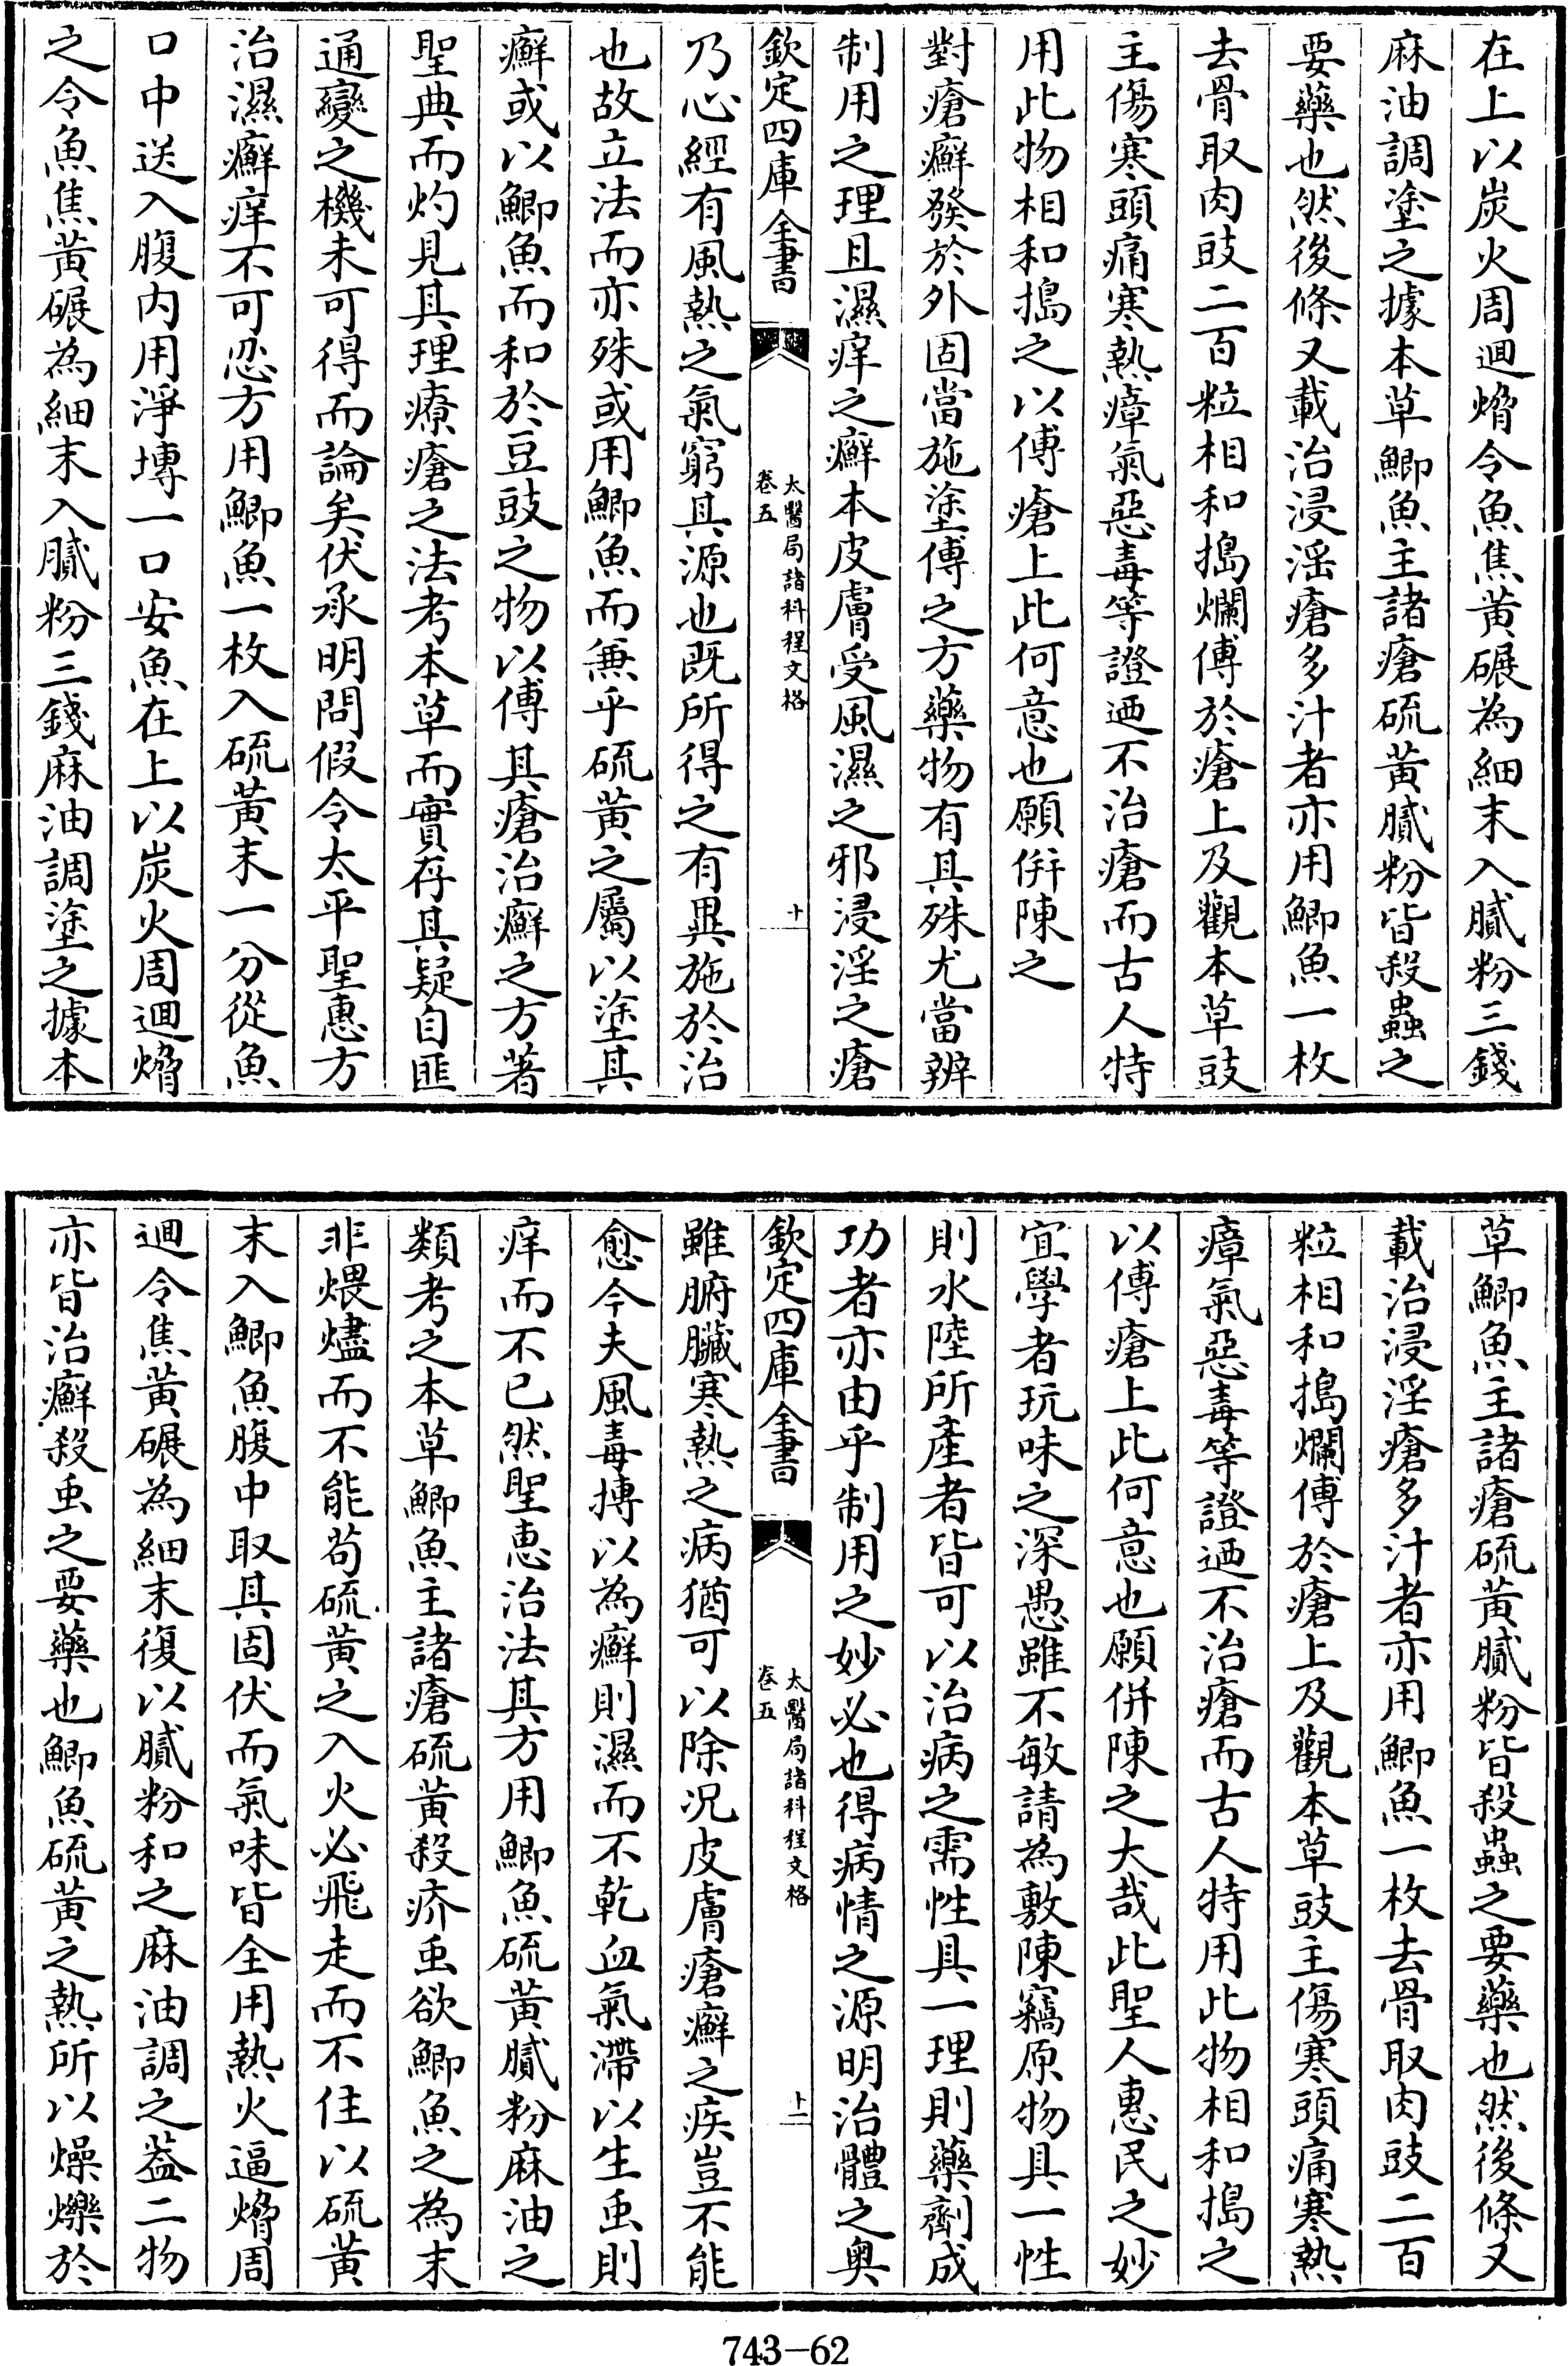 在上以炭火周迴熁令魚焦黄碾為細末入膩粉三錢
麻油調塗之據本草鯽魚主諸瘡硫黄膩粉皆殺蟲之
要藥也然後條又載治浸淫瘡多汁者亦用鯽魚一枚
去骨取肉豉二百粒相和搗爛傅於瘡上及觀本草豉
主傷寒頭痛寒熱瘴氣惡毒等證迺不治瘡而古人特
用此物相和搗之以傅瘡上此何意也願併陳之
對瘡癬發於外固當施塗傅之方藥物有其殊尤當辨
制用之理且濕痒之癬本皮膚受風濕之邪浸淫之瘡
欽定四庫全書
太醫局諸科程文格
卷五
十
乃心經有風熱之氣窮其源也既所得之有異施於治
也故立法而亦殊或用鯽魚而兼乎硫黄之屬以塗其
癬或以鯽魚而和於豆豉之物以傅其瘡治癬之方著
聖典而灼見其理療瘡之法考本草而實存其疑自匪
通變之機未可得而論矣伏承明問假令太平聖惠方
治濕癬痒不可忍方用鯽魚一枚入硫黄末一分從魚
口中送入腹内用淨塼一口安魚在上以炭火周迴熁
之令魚焦黄碾為細末入膩粉三錢麻油調塗之據本
草鯽魚主諸瘡硫黄膩粉皆殺蟲之要藥也然後條又
載治浸淫瘡多汁者亦用鯽魚一枚去骨取肉豉二百
粒相和搗爛傅於瘡上及觀本草豉主傷寒頭痛寒熱
瘴氣惡毒等證迺不治瘡而古人特用此物相和搗之
以傅瘡上此何意也願併陳之大哉此聖人惠民之妙
宜學者玩味之深愚雖不敏請為敷陳竊原物具一性
則水陸所產者皆可以治病之需性具一理則藥劑成
功者亦由乎制用之妙必也得病情之源明治體之奥
欽定四庫全書
太醫局諸科程文格
卷五
十一
雖腑臟寒熱之病猶可以除况皮膚瘡癬之疾豈不能
愈今夫風毒搏以為癬則濕而不乾血氣滯以生䖝則
痒而不已然聖惠治法其方用鯽魚硫黄膩粉麻油之
類考之本草鯽魚主諸瘡硫黄殺疥䖝欲鯽魚之為末
非煨燼而不能苟硫黄之入火必飛走而不住以硫黄
末入鯽魚腹中取其固伏而氣味皆全用熱火逼熁周
迴令焦黄碾為細末復以膩粉和之麻油調之葢二物
亦皆治癬殺䖝之要藥也鯽魚硫黄之熱所以燥爍於
743-62